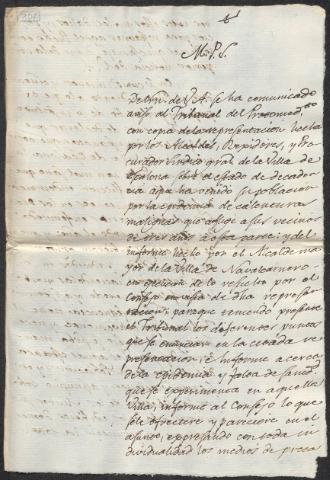 M. P. S.
De orn. de V. A. se ha comunicado
aviso al Tribunal del Protomed.to
con copia de la representacion hecha
por los Alcaldes, Regidores, y Pro
curador Sindico gral de la Villa de
sre el estado de decaden
cia a que ha venido su poblacion
por la epidemia de calenturas
malignas que aflige a sus vecinos
de tres años a esta parte; y del
informe hecho por el Alcalde ma
yor de la Villa de Navalcarnero
en execucion de lo resuelto por el
Consejo en vista de dha represen
tacion; para que teniendo presente
el Tribunal los diferentes puntos
que se enuncian en la citada re
presentacion, e informe acerca
de la epidemia y falta de salud
que se experimenta en aquella
Villa, informe al Consejo lo que
se le ofreciere y pareciere en el
asunto, expresando con toda in
dividualidad los medios de preca